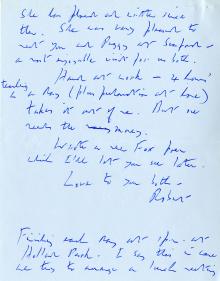 She has phoned or written since
then. She was very pleased to
meet you and Peggy at Seaford -
a most enjoyable visit for us both.
Hard at work - 4 hours'
teaching in a day (plus preparation at home)
takes it out of me. But we
need the money.
Write a new Fox poem
which I'll let you see later.
Love to you both -
Robert
Finishing each day at 1pm. at
Holland Park. I say this in case
we try to arrange a lunch meeting